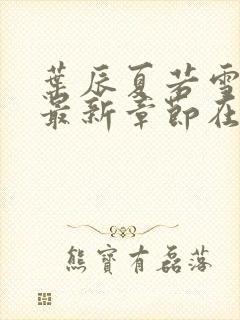 葉辰夏若雪
最新章節在
熊寶有磊落